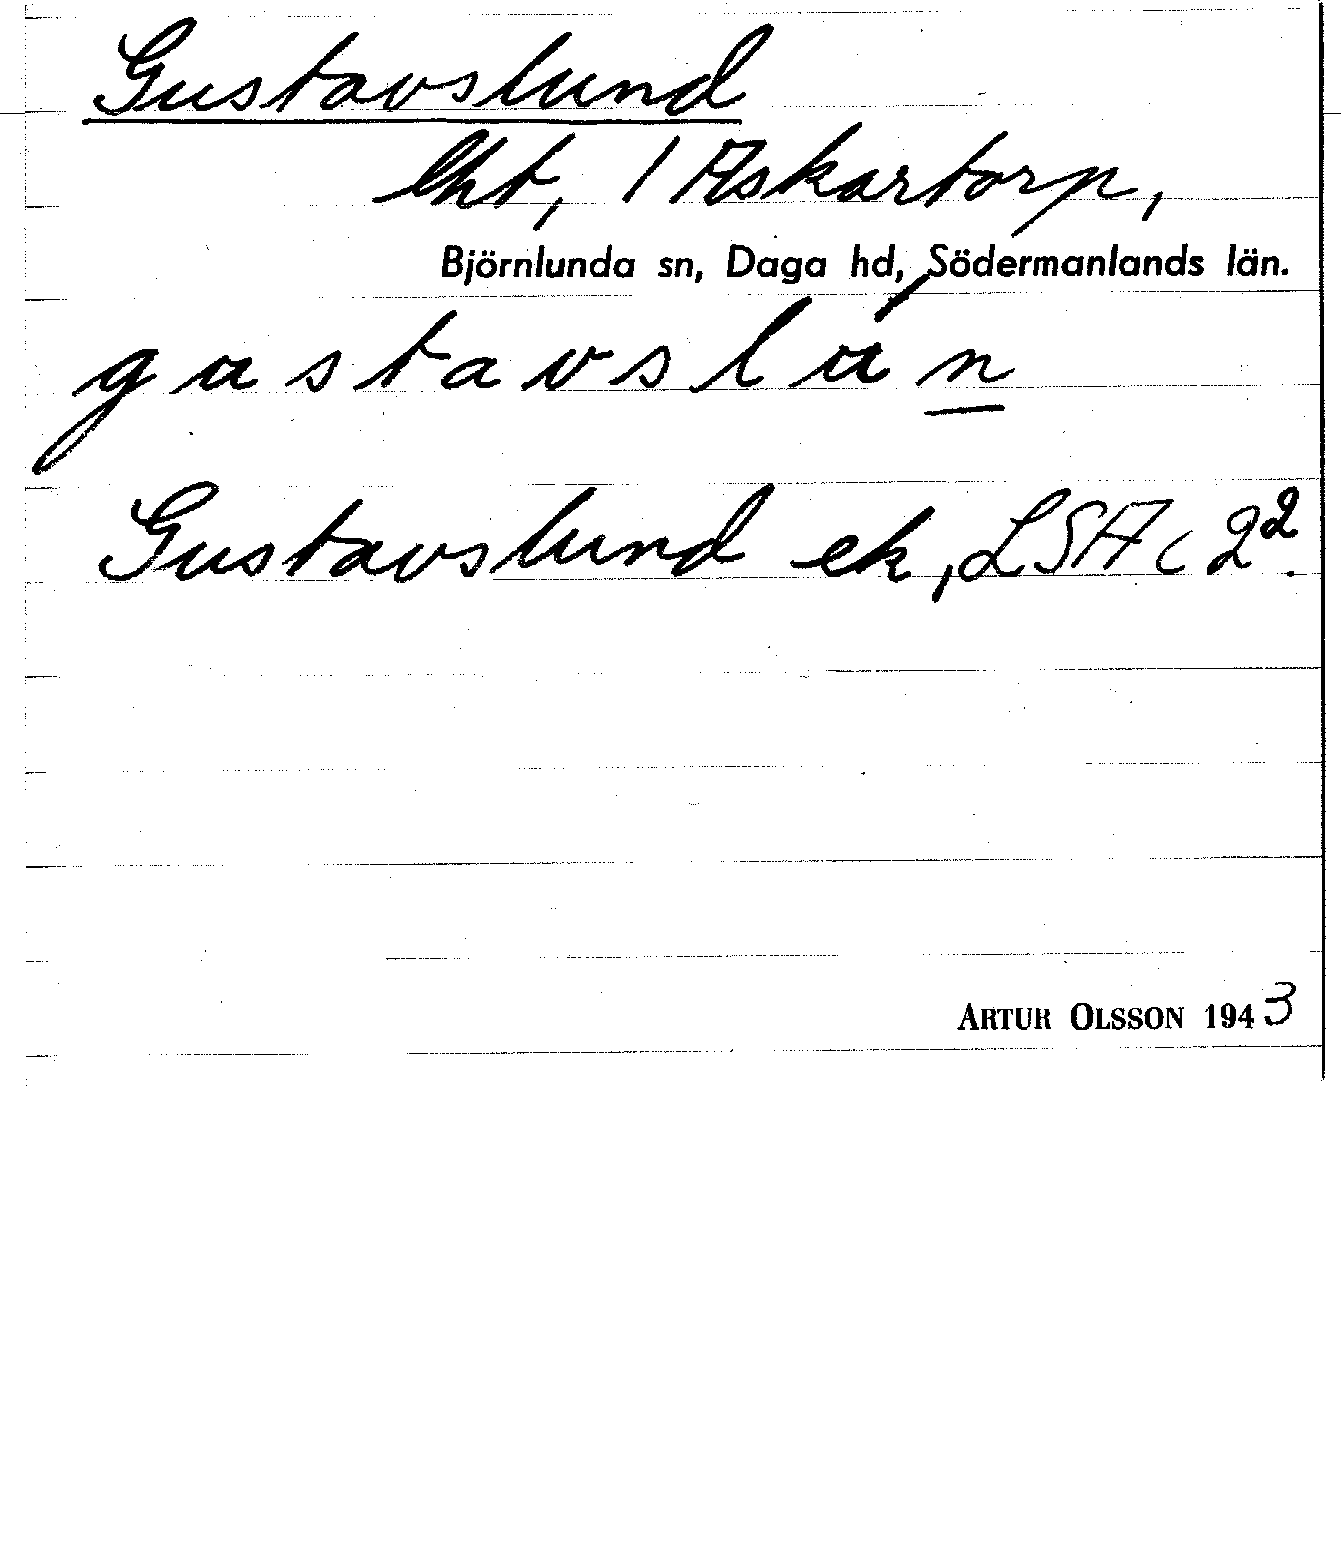 Gustavslund
lht, 1 Askartorp,
Björnlunda sn, Daga hd, Södermanlands län.
gustavslún
Gustavslund ek, LSA C 2².
ARTUR OLSSON 1943